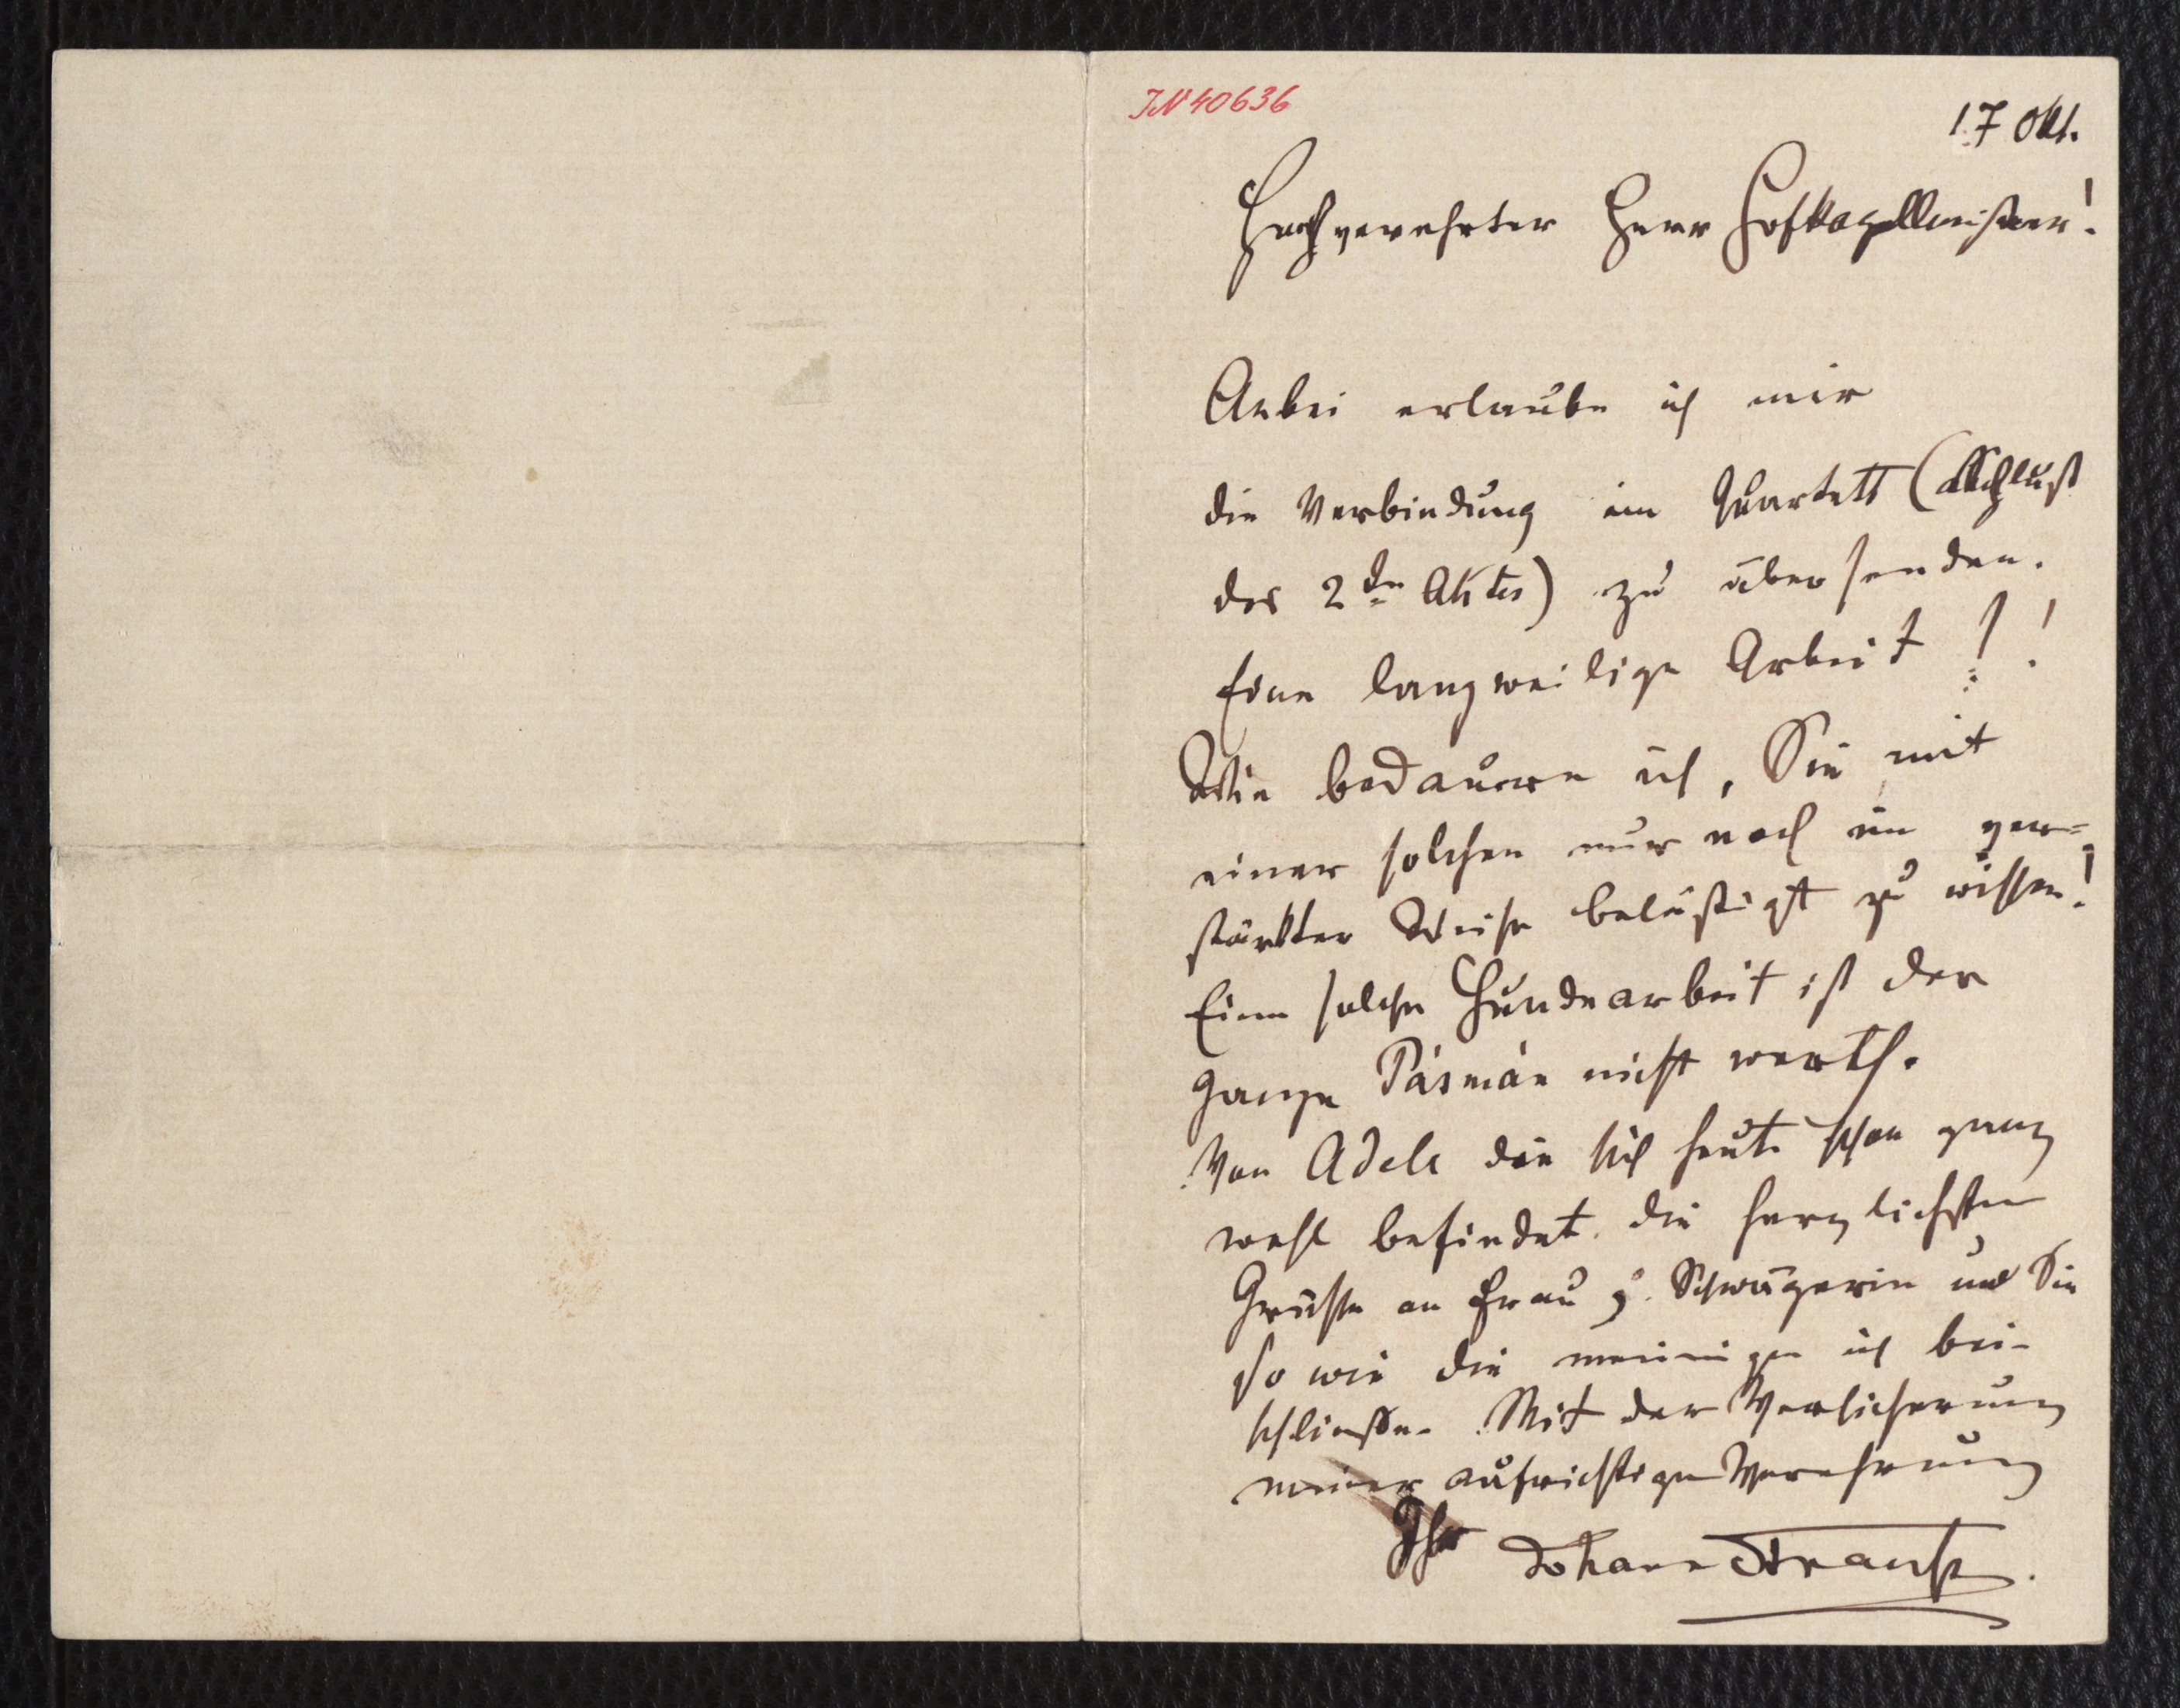 IN 40636
17 Okt.
Hochverehrter Herr Hofkapellmeister!
Anbei erlaube ich mir
die Verbindung im Quartett (Schluß
des 2ten Aktes) zu übersenden.
Eine langweilige Arbeit!!
Wie bedauere ich, Sie mit
einer solchen nur noch in ver=
stärkter Weise belästigt zu wissen!
Eine solche Hundearbeit ist der
ganze Pásmán nicht werth.
Von Adele die sich heute schon ganz
wohl befindet die herzlichsten
Grüsse an Frau g. Schwägerin und Sie
so wie die meinigen ich bei-
schliesse. Mit der Versicherung
meiner aufrichtigen Verehrung
Ihr Johann Strauss.